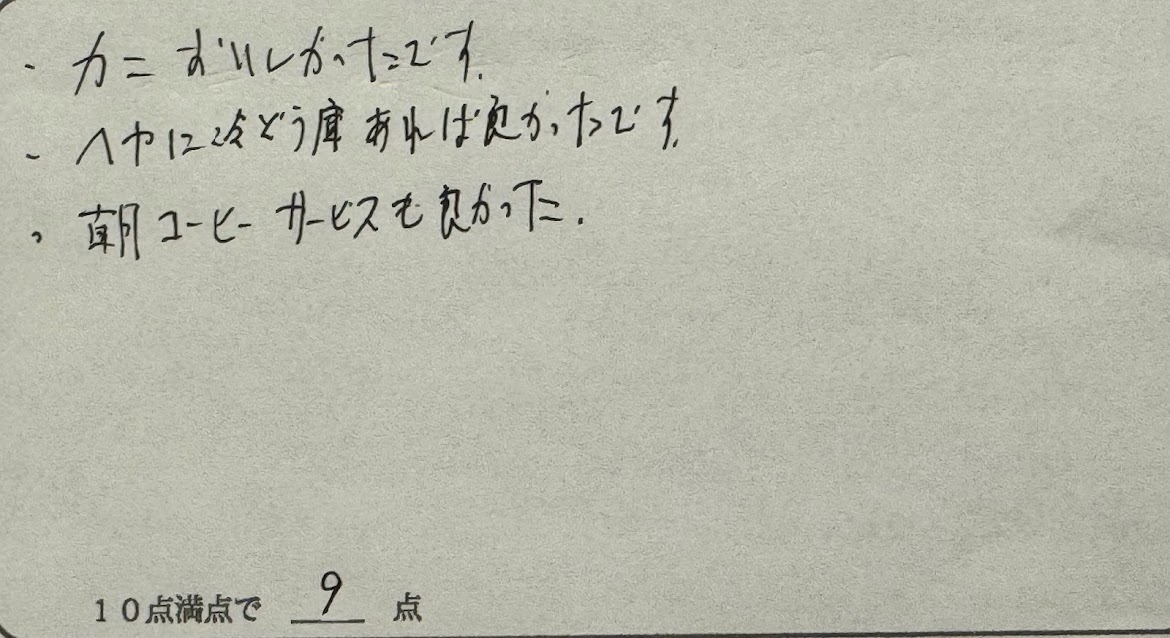 ・カニ おいしかったです.
・ヘヤに冷どう庫あれば良かったです.
・朝コーヒーサービスも良かった.
10点満点で 9 点